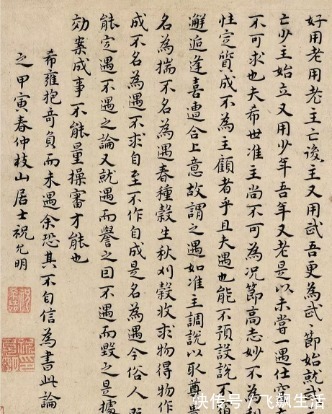 好用老用老主亡後主又用武吾更為武節就
亡少主始立又用少年吾年又老是以未嘗一遇仕
不可求也夫希世准主尚不可為況節高志妙不為
性定質成不為主顧者乎且夫遇也能不預設說不
邂逅逢喜遭合上意故謂之遇如准主調說以取尊
名為揣不名為遇春種穀生秋刈穀收求物得物作
成不名為遇不求自至不作自成是名為遇今俗人
能定遇不遇之論又就遇而譽之因不遇而毀之是據
効案成事不能量操審才能也
希雍抱奇負而未遇余恐其不自信為書此論
之甲寅春仲枝山居士祝允明
快传号/飞飙生活